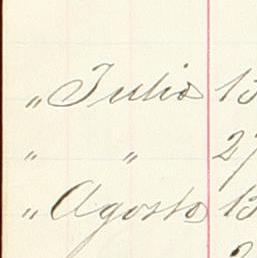 " Julio 13
" " 27
" Agosto 13